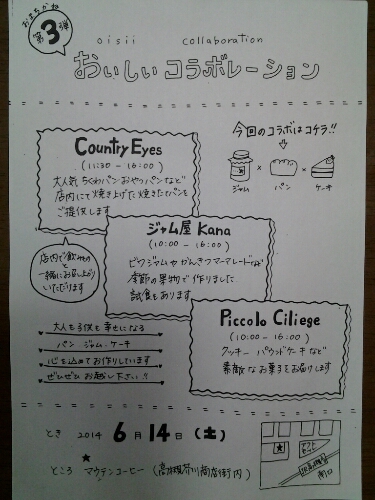 おまちかね
第3弾
oisii collaboration
おいしいコラボレーション
今回のコラボはコチラ!!
ジャム × パン × ケーキ
Country Eyes
(11:30 - 16:00)
大人気 ちくわパン・おやつパンなど
店内にて焼き上げた焼きたてパンを
ご提供します
店内で飲み物の
一緒にお召し上がり
いただけます
ジャム屋 Kana
(10:00 - 16:00)
ビワジャムやかんきつマーマレードなど
季節の果物で作りました
試食もあります
Piccolo Ciliege
(10:00 - 16:00)
クッキー パウンドケーキなど
素敵なお菓子をお届けします
大人も子供も幸せになる
パン ジャム ケーキ
心を込めてお作りしています
ぜひぜひ お越し下さい!!
とき 2014 6月14日(土)
ところ マウンテンコーヒー (高木瀬
商店街内)
南口